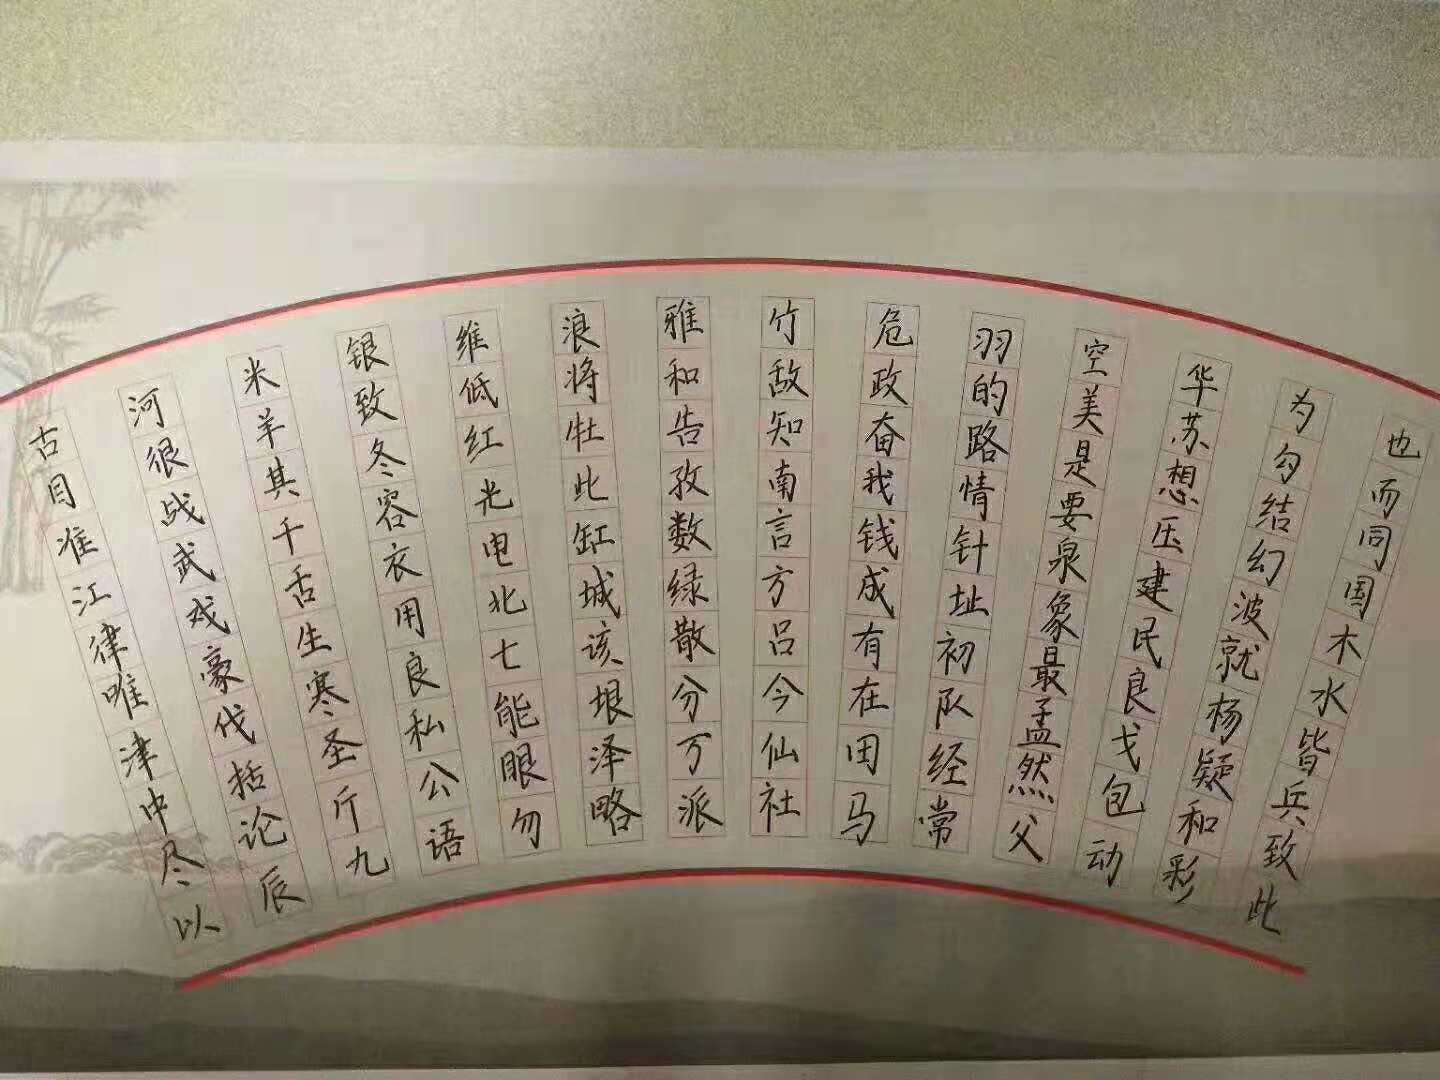 也而同国木水皆兵致此
为勾结幻波就杨疑和彩
华苏想压建民良戈包动
空美是要泉象最孟然父
羽的路情针址初队经常
危政奋我钱成有在田马
竹敌知南言方吕今仙社
雅和告孜数绿散分万派
浪将牡此缸城该垠泽略
维低红光电北七能眼勿
银致冬容衣用良私公语
米羊其千舌生寒圣斤九
河很战武戏豪伐括论辰
古目准江律唯津中尽以